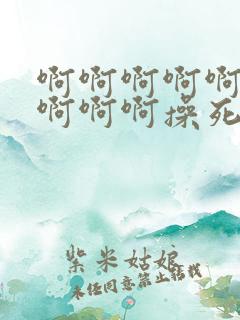 啊啊啊啊啊
啊啊啊操死
紫米姑娘
未经同意禁止转载